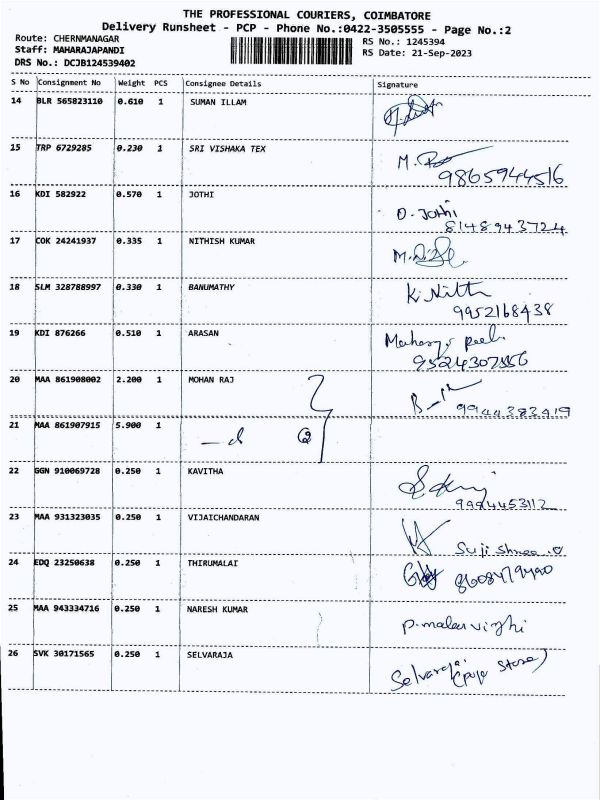 THE PROFESSIONAL COURIERS, COIMBATORE
Delivery Runsheet - PCP - Phone No.:0422-3505555 - Page No.:2
Route: CHERNMANAGAR
Staff: MAHARAJAPANDI
DRS No.: DCJB124539402
RS No.: 1245394
RS Date: 21-Sep-2023
S No Consignment No Weight PCS Consignee Details Signature
14 BLR 565823110 0.610 1 SUMAN ILLAM
15 TRP 6729285 0.230 1 SRI VISHAKA TEX M.
9865944516
16 KDI 582922 0.570 1 JOTHI O. Jothi
8148943724
17 COK 24241937 0.335 1 NITHISH KUMAR
18 SLM 328788997 0.330 1 BANUMATHY K. Nith
9952168438
19 KDI 876266 0.510 1 ARASAN
9524307556
20 MAA 861908002 2.200 1 MOHAN RAJ
9944383419
21 MAA 861907915 5.900 1
22 GGN 910069728 0.250 1 KAVITHA
9994453112
23 MAA 931323035 0.250 1 VIJAICHANDARAN
24 EDQ 23250638 0.250 1 THIRUMALAI
25 MAA 943334716 0.250 1 NARESH KUMAR P. malar vizhi
26 SVK 30171565 0.250 1 SELVARAJA Selvaraja